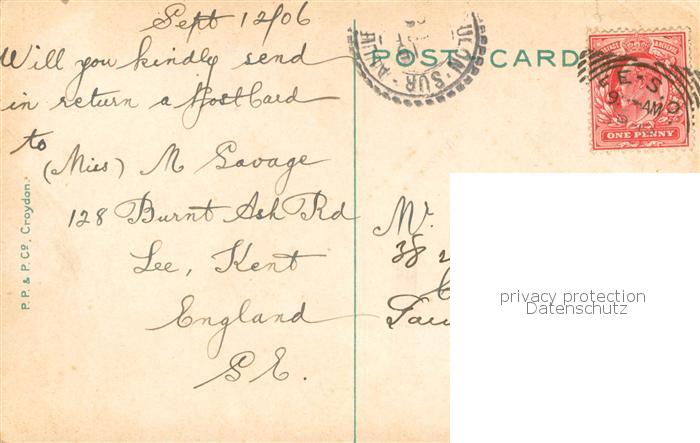 Sept 12/06
Will you kindly send
in return a PostCard
to
(Miss) M Savage
128 Burnt Ash Rd
Lee, Kent
England
S.E.
P. P. & P. Co, Croydon.
POST CARD
SUR
POSTAGE REVENUE
EE-S.O
9 AM
ONE PENNY
M.
38
privacy protection
Datenschutz